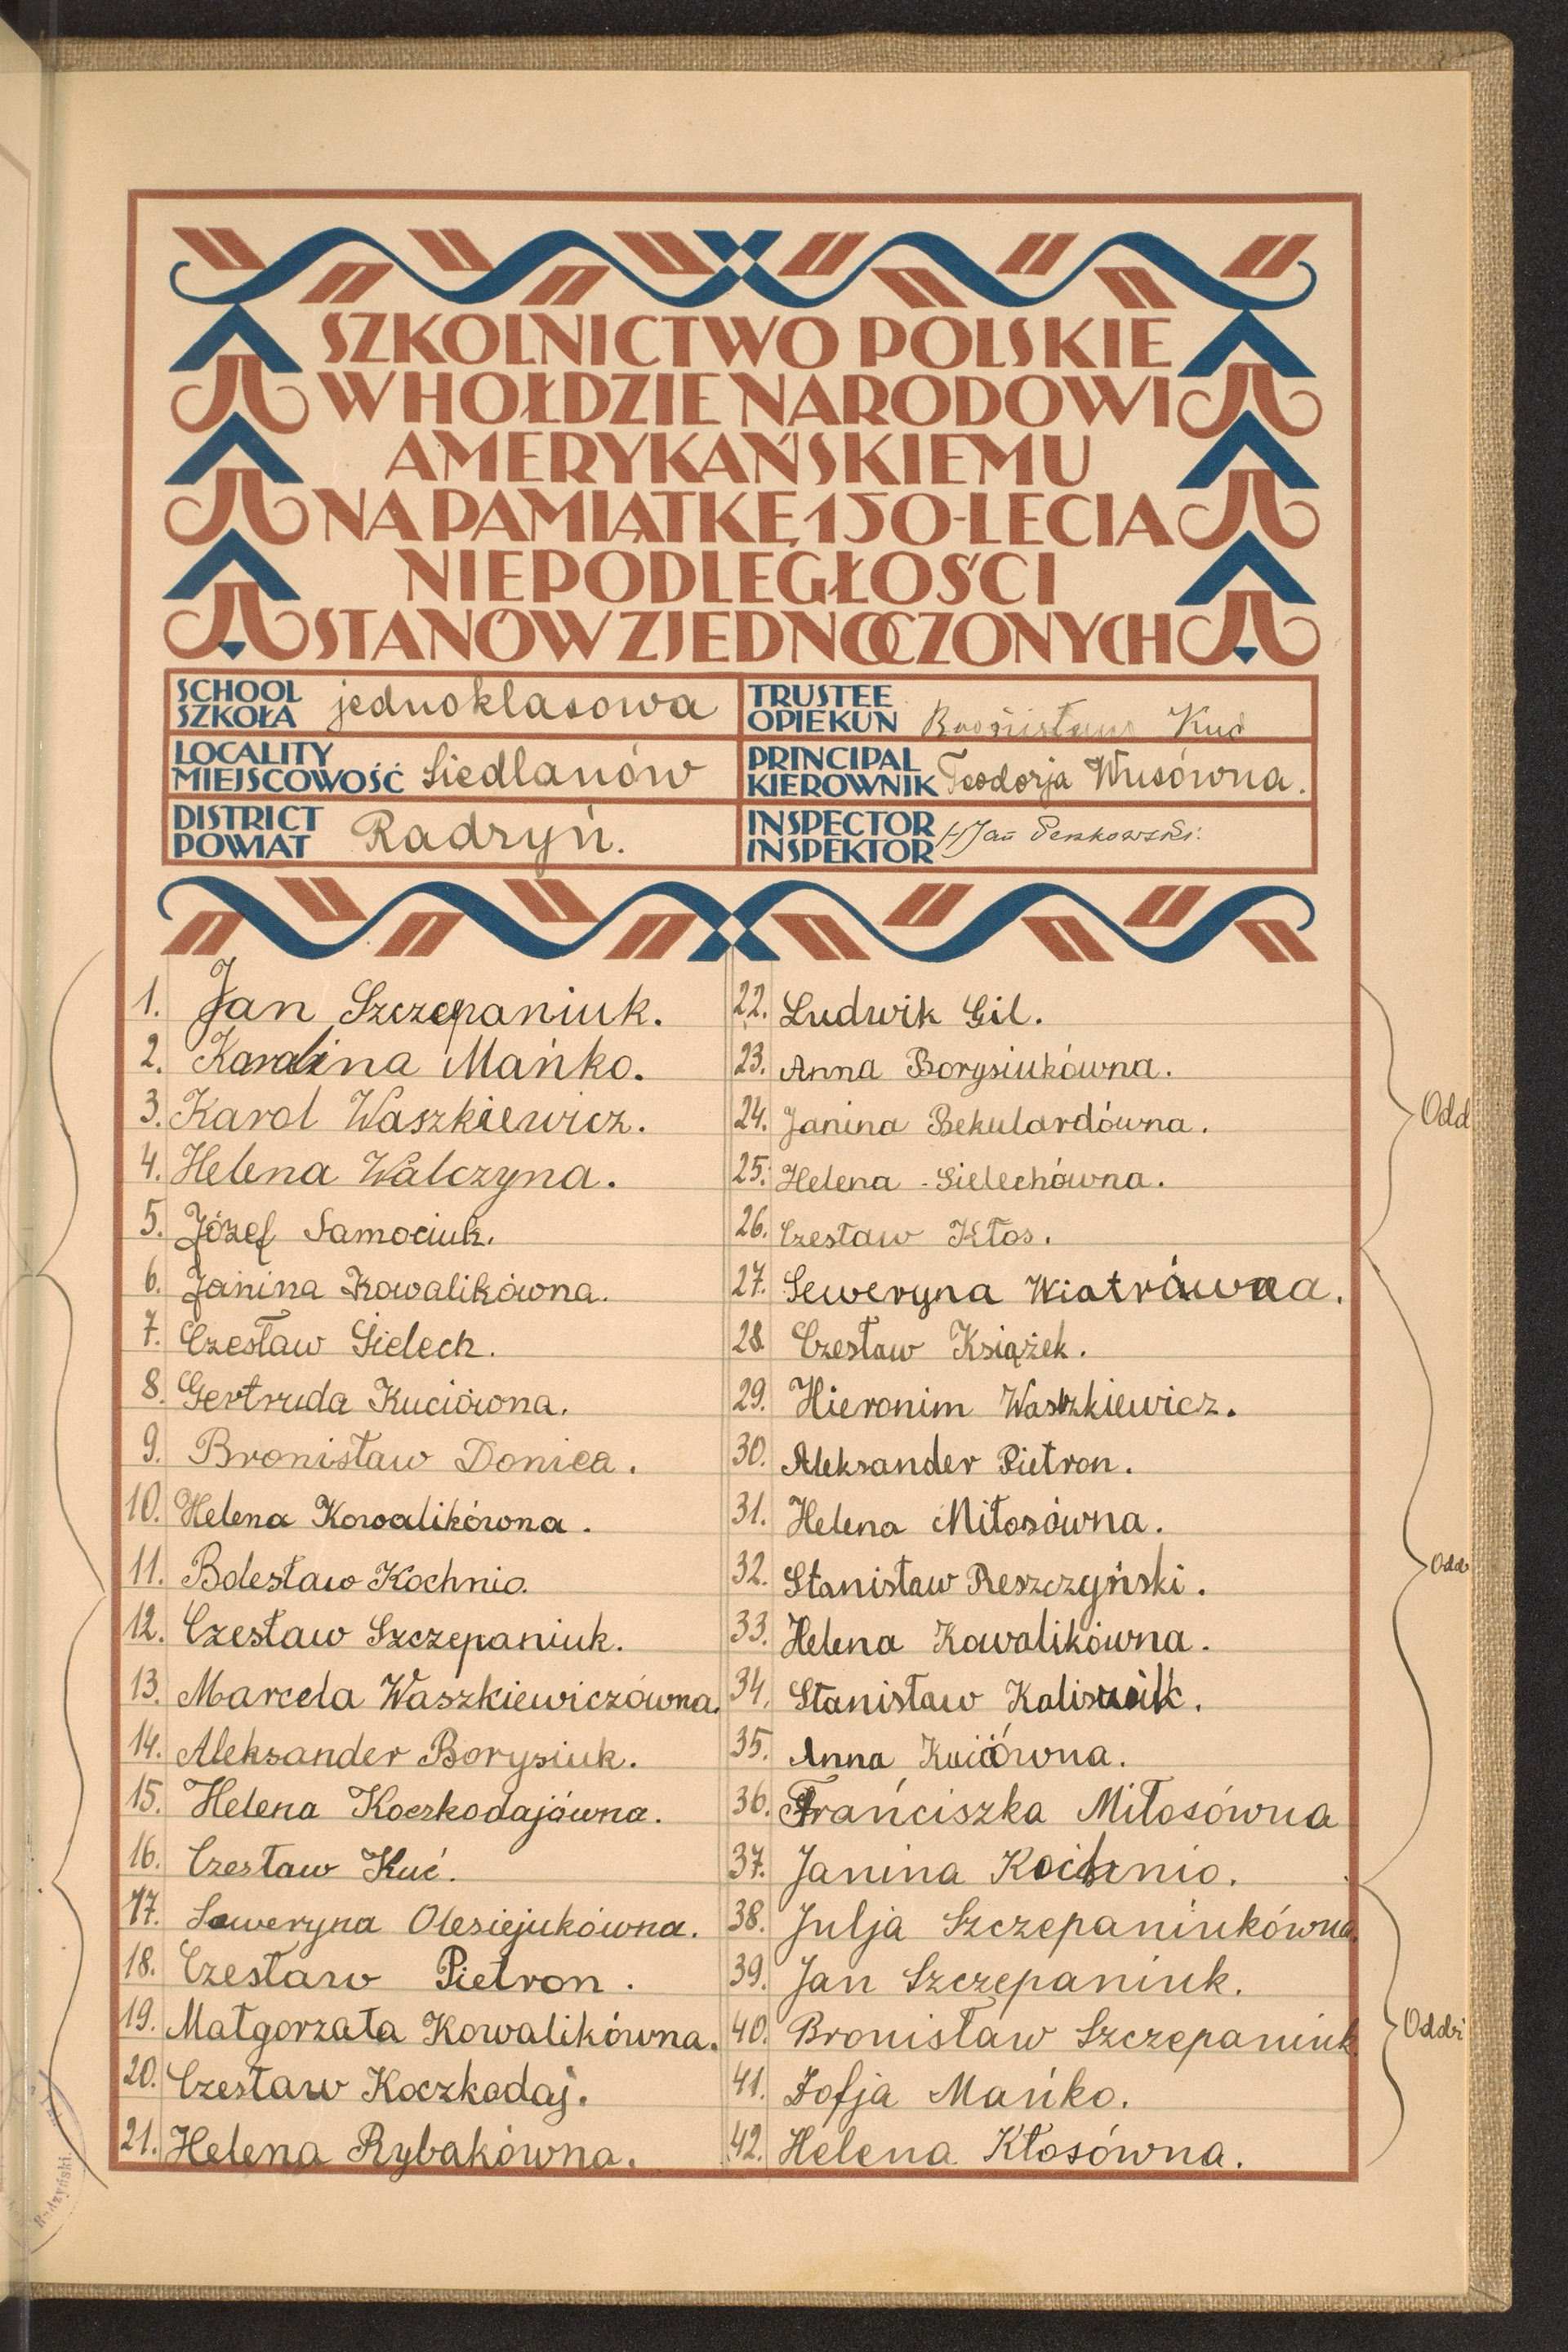 SZKOLNICTWO POLSKIE
W HOŁDZIE NARODOWI
AMERYKAŃSKIEMU
NA PAMIĄTKĘ 150-LECIA
NIEPODLEGŁOŚCI
STANÓW ZJEDNOCZONYCH
SCHOOL
SZKOŁA jednoklasowa
TRUSTEE
OPIEKUN Bronisław Kuć
LOCALITY
MIEJSCOWOŚĆ Siedlanów
PRINCIPAL
KIEROWNIK Teodorja Wusówna.
DISTRICT
POWIAT Radzyń.
INSPECTOR
INSPEKTOR Jan
1. Jan Szczepaniuk.
2. Karolina Mańko.
3. Karol Waszkiewicz.
4. Helena Walczyna.
5. Józef Samociuk.
6. Janina Kowalikówna.
7. Czesław Sielech.
8. Gertruda Kuciówna.
9. Bronisław Donica.
10. Helena Kowalikówna.
11. Bolesław Kochnio.
12. Czesław Szczepaniuk.
13. Marcela Waszkiewiczówna.
14. Aleksander Borysiuk.
15. Helena Koczkodajówna.
16. Czesław Kuć.
17. Seweryna Olesiejukówna.
18. Czesław Pietron.
19. Małgorzata Kowalikówna.
20. Czesław Koczkodaj.
21. Helena Rybakówna.
22. Ludwik Gil.
23. Anna Borysiukówna.
24. Janina Bekulardówna.
25. Helena Sielechówna.
26. Czesław Kłos.
27. Seweryna Wiatrówna.
28 Czesław Książek.
29. Hieronim Waszkiewicz.
30. Aleksander Pietron.
31. Helena Miłosówna.
32. Stanisław Reszczyński.
33. Helena Kowalikówna.
34. Stanisław
35. Anna Kuciówna.
36. Frańciszka Miłosówna
37. Janina Kochnio.
38. Julja Szczepaniukówna.
39. Jan Szczepaniuk.
40. Bronisław Szczepaniuk
41. Zofja Mańko.
42. Helena Kłosówna.
Odd
Odd
Oddzi
Radzyński